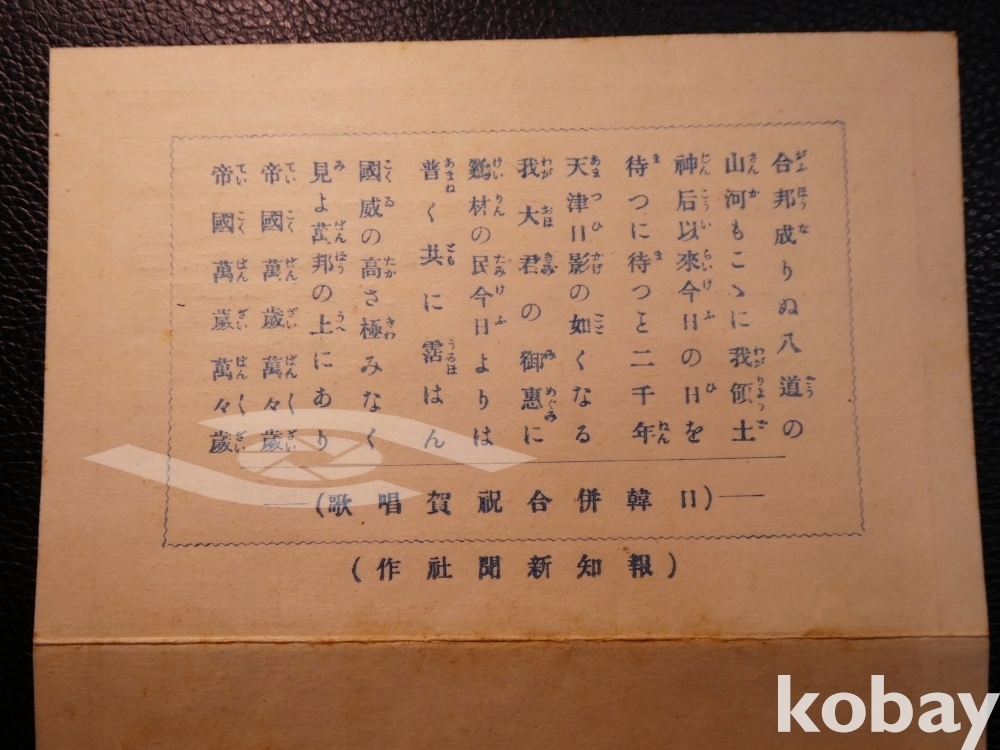 合邦成りぬ八道の
山河もこゝに我領土
神后以來今日の日を
待つに待つと二千年
天津日影の如くなる
我大君の御惠に
鷄林の民今日よりは
普く共に霑はん
國威の高さ極みなく
見よ萬邦の上にあり
帝國萬歲萬々歲
帝國萬歲萬々歲
(日韓併合祝賀唱歌)
(報知新聞社作)
kobay